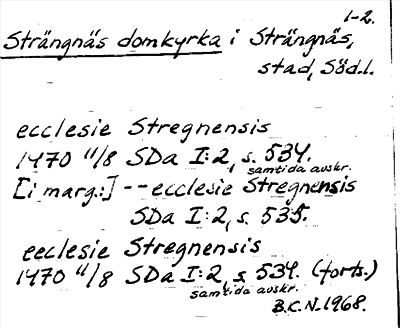 1-2.
Strängnäs domkyrka i Strängnäs,
stad, Söd.l.
ecclesie Stregnensis
1470 11/8 SDa I:2, s. 534.
samtida avskr.
[i marg.:] -- ecclesie Stregnensis
SDa I:2, s. 535.
ecclesie Stregnensis
1470 11/8 SDa I:2, s. 534. (forts.)
samtida avskr.
B.C.N. 1968.